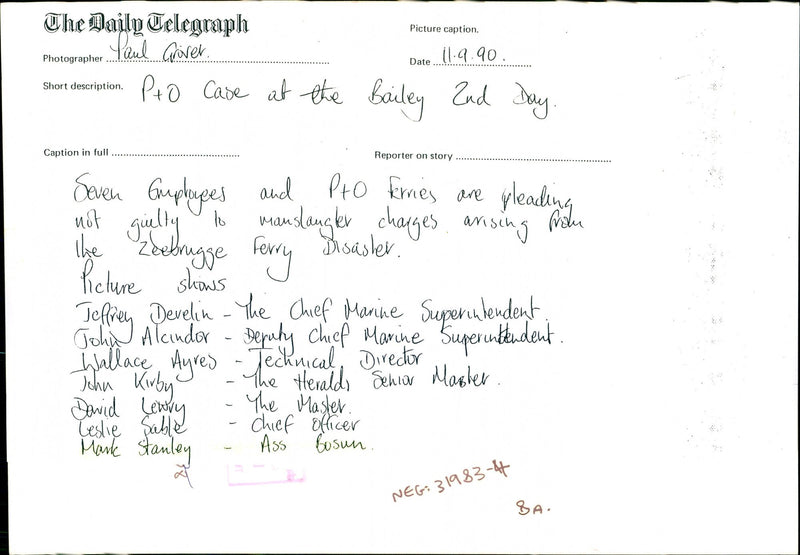 The Daily Telegraph
Picture caption.
Photographer Paul Grover.
Date 11.9.90.
Short description. P+O Case at the Bailey 2nd Day.
Caption in full
Reporter on story
Seven Employees and P+O Ferries are pleading
not guilty to manslaughter charges arising from
the Zeebrugge Ferry Disaster.
Picture shows
Jeffrey Develin - The Chief Marine Superintendent
John Alcindor - Deputy Chief Marine Superintendent.
Wallace Ayres - Technical Director
John Kirby - The Heralds Senior Master.
David Lewry - The Master.
Leslie Sable - Chief Officer
Mark Stanley - Ass Bosun.
NEG: 31983-4
8A.